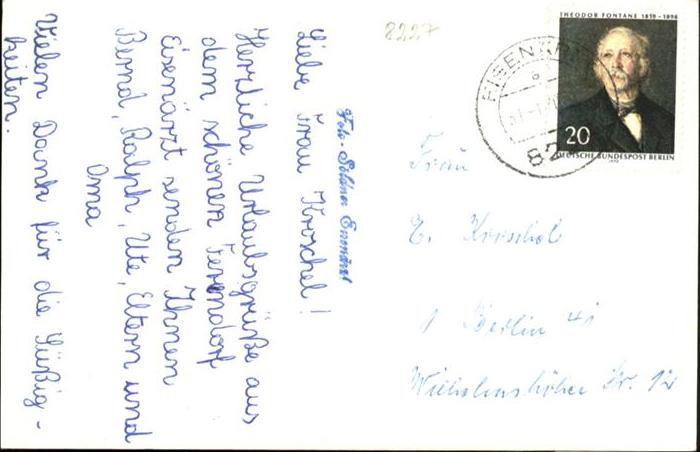 8227
Liebe Frau Kroschel!
Herzliche Urlaubsgrüße aus
dem schönen Feriendorf
Eisenärzt senden Ihnen
Bernd, Ralph, Ute, Eltern und
Oma
Vielen Dank für die Süßig-
keiten.
Foto-
THEODOR FONTANE 1819-1898
20
DEUTSCHE BUNDESPOST BERLIN
1970
EISEN
82
Frau
E. Kroschel
1 Berlin 41
Wilhelmshöher Str. 12